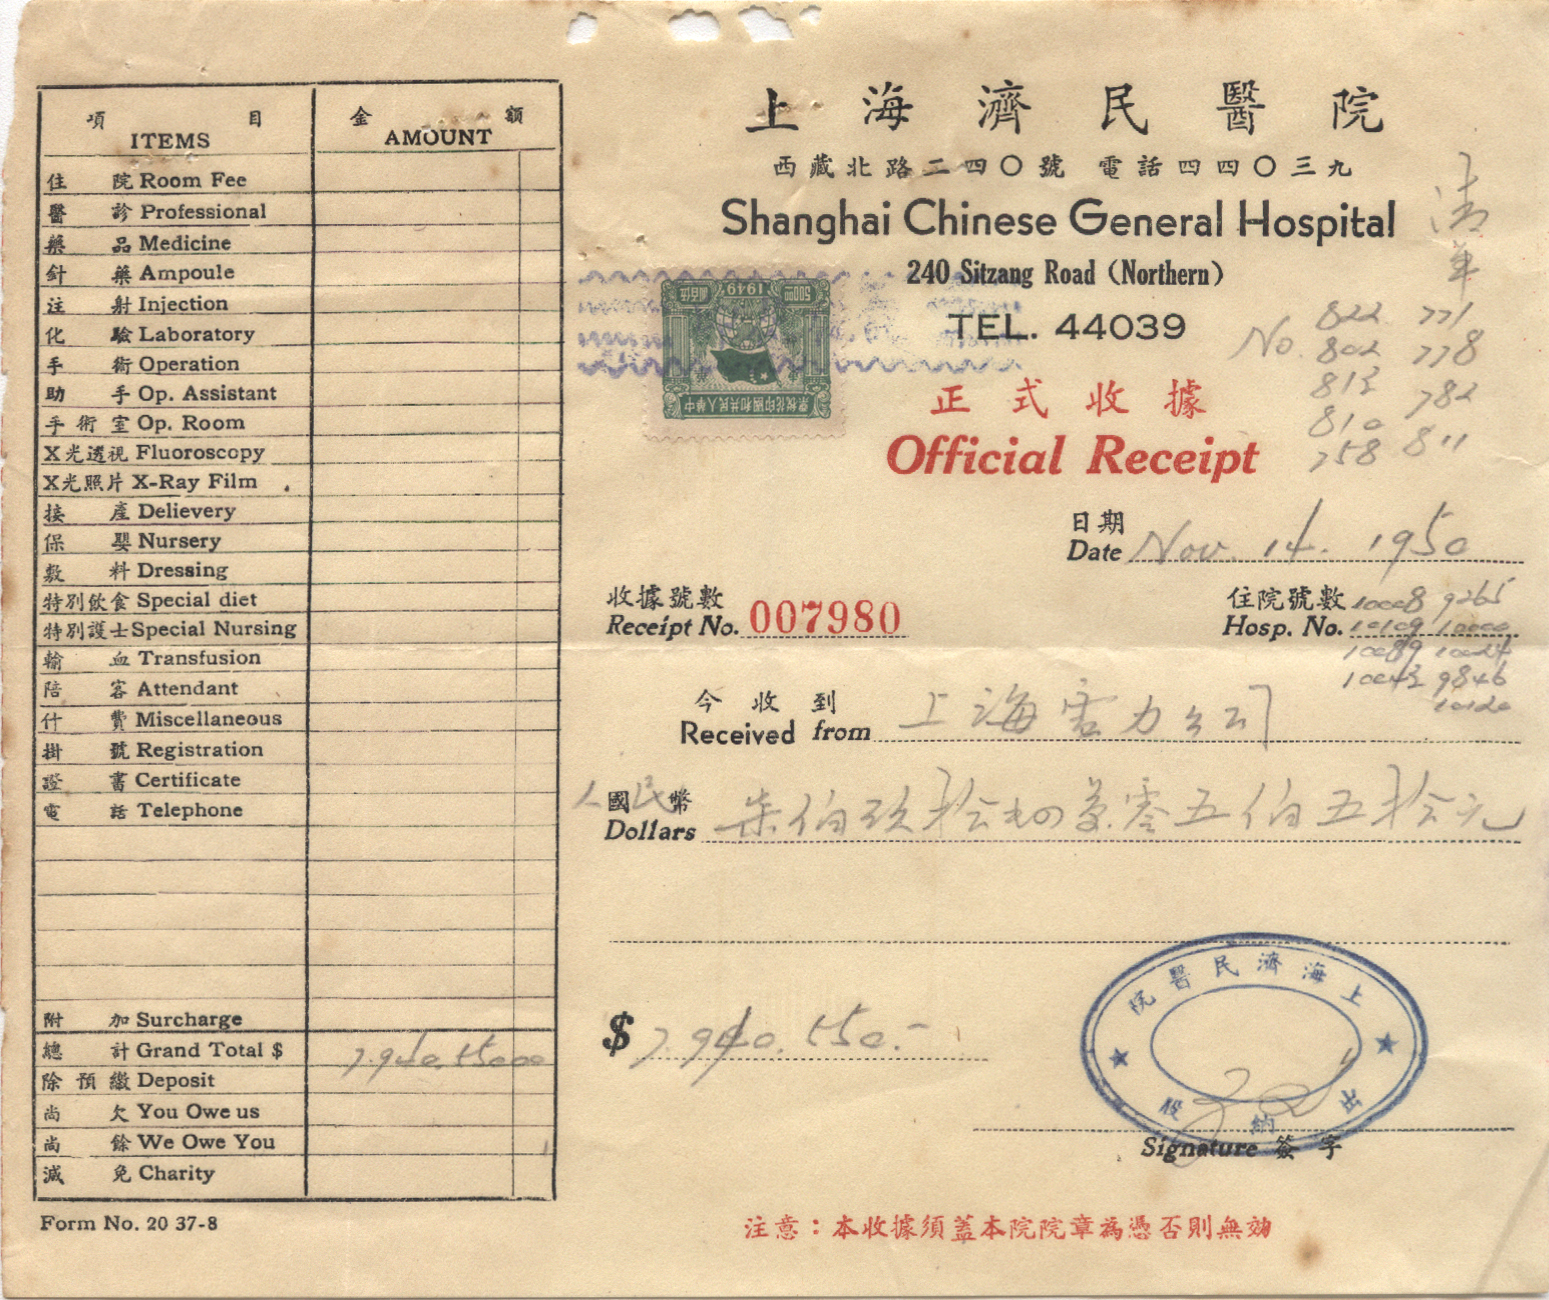 項 目 金 額
ITEMS AMOUNT
住 院 Room Fee
醫 診 Professional
藥 品 Medicine
針 藥 Ampoule
注 射 Injection
化 驗 Laboratory
手 術 Operation
助 手 Op. Assistant
手 術 室 Op. Room
X光透視 Fluoroscopy
X光照片 X-Ray Film
接 產 Delievery
保 嬰 Nursery
敷 料 Dressing
特別飲食 Special diet
特別護士 Special Nursing
輸 血 Transfusion
陪 客 Attendant
什 費 Miscellaneous
掛 號 Registration
證 書 Certificate
電 話 Telephone
附 加 Surcharge
總 計 Grand Total $ 7.940.55000
除 預 繳 Deposit
尚 欠 You Owe us
尚 餘 We Owe You
減 免 Charity
Form No. 20 37-8
上海濟民醫院
西藏北路二四〇號 電話四四〇三九
Shanghai Chinese General Hospital
240 Sitzang Road (Northern)
TEL. 44039
1949
500.00
中華人民共和國印花稅票
No. 822 771
802 778
813 782
810
758 811
正式收據
Official Receipt
日期
Date Nov. 14. 1950
收據號數
Receipt No. 007980
住院號數 10008 9265
Hosp. No. 10109 10000
10089 10024
10043 9846
10120
今收到
Received from 上海電力公司
人民幣國
Dollars 柒佰玖拾四萬零五佰五拾元
$ 7.940.550.-
上海濟民醫院
★ ★
出納股
Signature 簽字
注意：本收據須蓋本院院章為憑否則無効